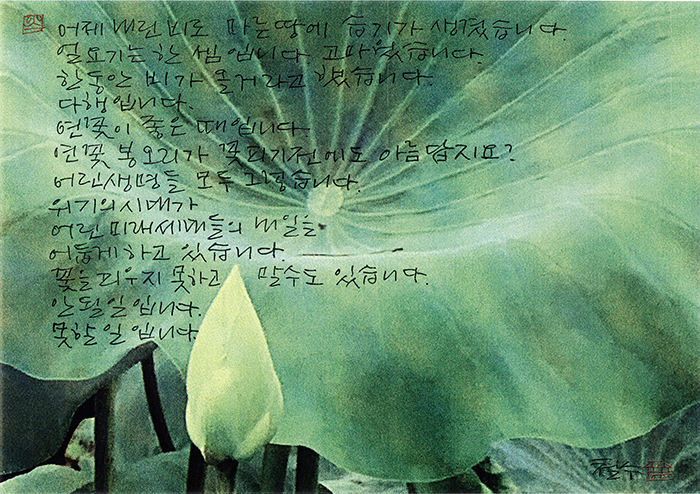 어제 내린 비로 마른 땅에 습기가 생겼습니다.
얼요기는 한 셈입니다. 고마웠습니다.
한동안 비가 올거라고 했습니다.
다행입니다.
연꽃이 좋은 때입니다.
연꽃 봉오리가 꽃피기전에도 아름답지요?
어린생명들 모두 그렇습니다.
위기의시대가
어린 미래세대들의 내일을
어둡게하고 있습니다.
꽃을피우지 못하고 말수도 있습니다.
안될일입니다.
못할일입니다.
철수